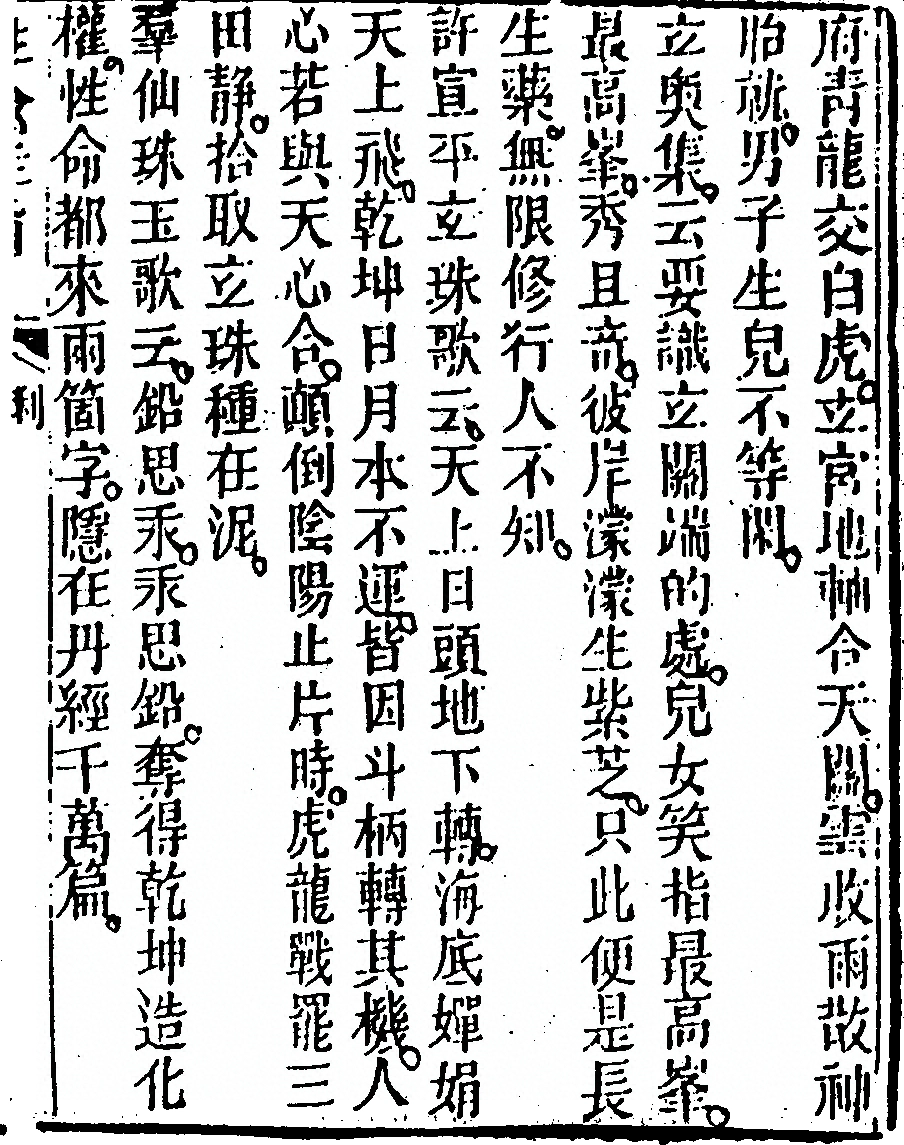 府青龍交白虎。玄宮地軸合天關。雲收雨散神
胎就。男子生兒不等閑。
玄奧集。云要識玄關端的處。兒女笑指最高峯。
最高峯。秀且奇。彼岸濛濛生紫芝。只此便是長
生藥。無限修行人不知。
許宣平玄珠歌云。天上日頭地下轉。海底嬋娟
天上飛。乾坤日月本不運。皆因斗柄轉其機。人
心若與天心合。顛倒陰陽止片時。虎龍戰罷三
田靜。拾取玄珠種在泥。
羣仙珠玉歌云。鉛思汞。汞思鉛。奪得乾坤造化
權。性命都來兩箇字。隱在丹經千萬篇。